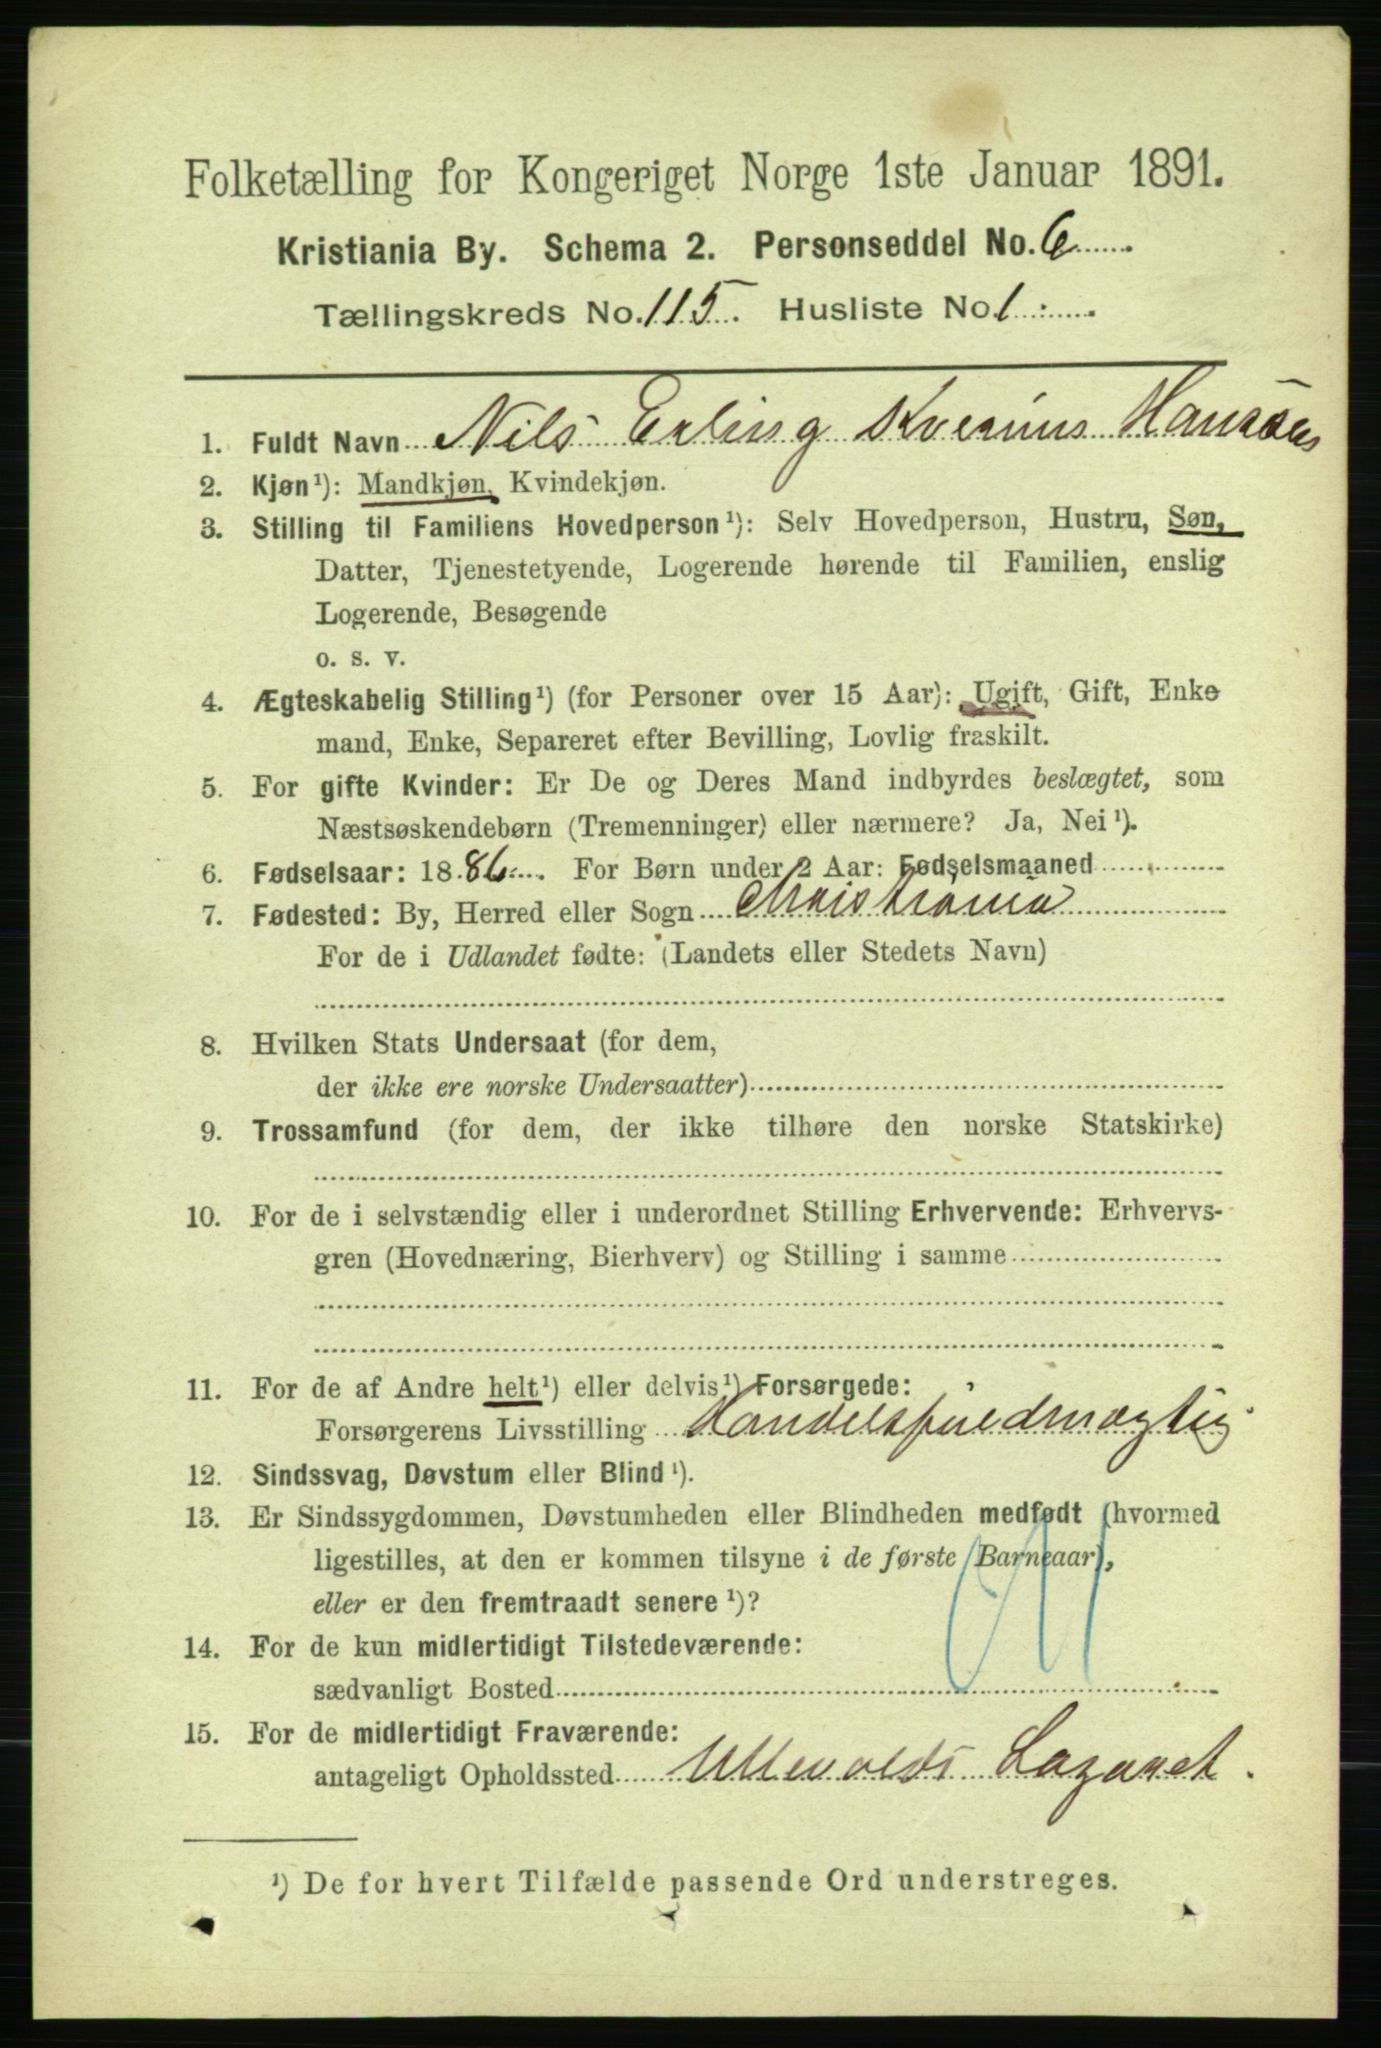 Folketælling for Kongeriget Norge 1ste Januar 1891.
Kristiania By. Schema 2. Personseddel No. 6
Tællingskreds No. 115. Husliste No. 1
1. Fuldt Navn Nils Erling Kverius Hansen
2. Kjøn¹): Mandkjøn, Kvindekjøn.
3. Stilling til Familiens Hovedperson¹): Selv Hovedperson, Hustru, Søn,
Datter, Tjenestetyende, Logerende hørende til Familien, enslig
Logerende, Besøgende
o. s. v.
4. Ægteskabelig Stilling¹) (for Personer over 15 Aar): Ugift, Gift, Enke
mand, Enke, Separeret efter Bevilling, Lovlig fraskilt.
5. For gifte Kvinder: Er De og Deres Mand indbyrdes beslægtet, som
Næstsøskendebørn (Tremenninger) eller nærmere? Ja, Nei¹).
6. Fødselsaar: 1886 For Børn under 2 Aar: Fødselsmaaned
7. Fødested: By, Herred eller Sogn Christiania
For de i Udlandet fødte: (Landets eller Stedets Navn)
8. Hvilken Stats Undersaat (for dem,
der ikke ere norske Undersaatter)
9. Trossamfund (for dem, der ikke tilhøre den norske Statskirke)
10. For de i selvstændig eller i underordnet Stilling Erhvervende: Erhvervs-
gren (Hovednæring, Bierhverv) og Stilling i samme
11. For de af Andre helt¹) eller delvis¹) Forsørgede:
Forsørgerens Livsstilling Handelsfuldmægtig
12. Sindssvag, Døvstum eller Blind¹).
13. Er Sindssygdommen, Døvstumheden eller Blindheden medfødt (hvormed
ligestilles, at den er kommen tilsyne i de første Barneaar),
eller er den fremtraadt senere¹)?
14. For de kun midlertidigt Tilstedeværende:
sædvanligt Bosted
15. For de midlertidigt Fraværende:
antageligt Opholdssted Ullevolds Lazaret.
¹) De for hvert Tilfælde passende Ord understreges.